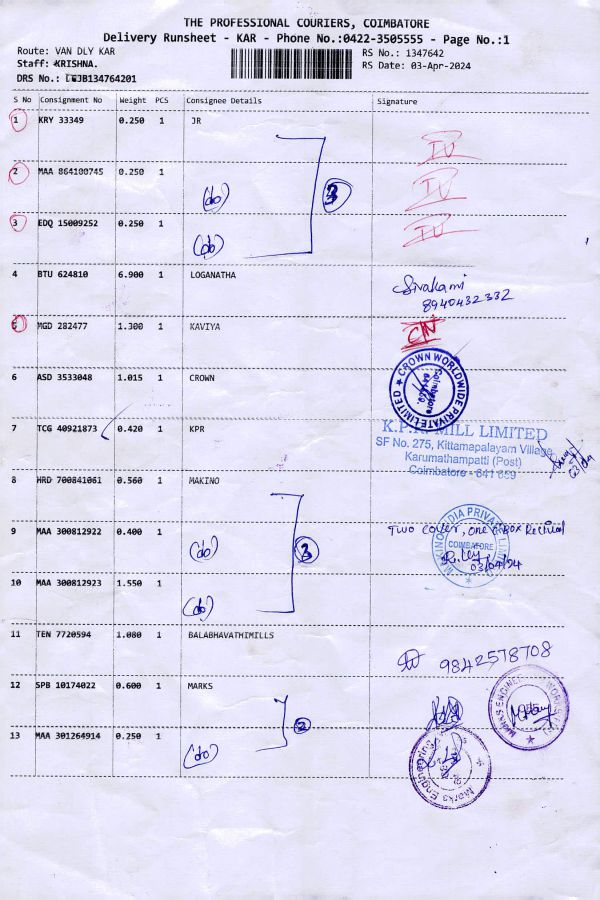 THE PROFESSIONAL COURIERS, COIMBATORE
Delivery Runsheet - KAR - Phone No.:0422-3505555 - Page No.:1
Route: VAN DLY KAR RS No.: 1347642
Staff: KRISHNA. RS Date: 03-Apr-2024
DRS No.: JB134764201
S No Consignment No Weight PCS Consignee Details Signature
1 KRY 33349 0.250 1 JR
2 MAA 864100745 0.250 1 (do) 3
3 EDQ 15009252 0.250 1 (do)
4 BTU 624810 6.900 1 LOGANATHA Sivakami
8940432332
5 MGD 282477 1.300 1 KAVIYA
6 ASD 3533048 1.015 1 CROWN CROWN WORLDWIDE PRIVATE LIMITED
7 TCG 40921873 0.420 1 KPR K.P.R. MILL LIMITED
SF No. 275, Kittampalayam Village
Karumathampatti (Post)
Coimbatore - 641 659
8 HRD 700841061 0.560 1 MAKINO
9 MAA 300812922 0.400 1 (do) 3 Two cover, one Box
COIMBATORE
03/04/24
10 MAA 300812923 1.550 1 (do)
11 TEN 7720594 1.080 1 BALABHAVATHIMILLS 9842578708
12 SPB 10174022 0.600 1 MARKS 2
13 MAA 301264914 0.250 1 (do) Marks Engineering